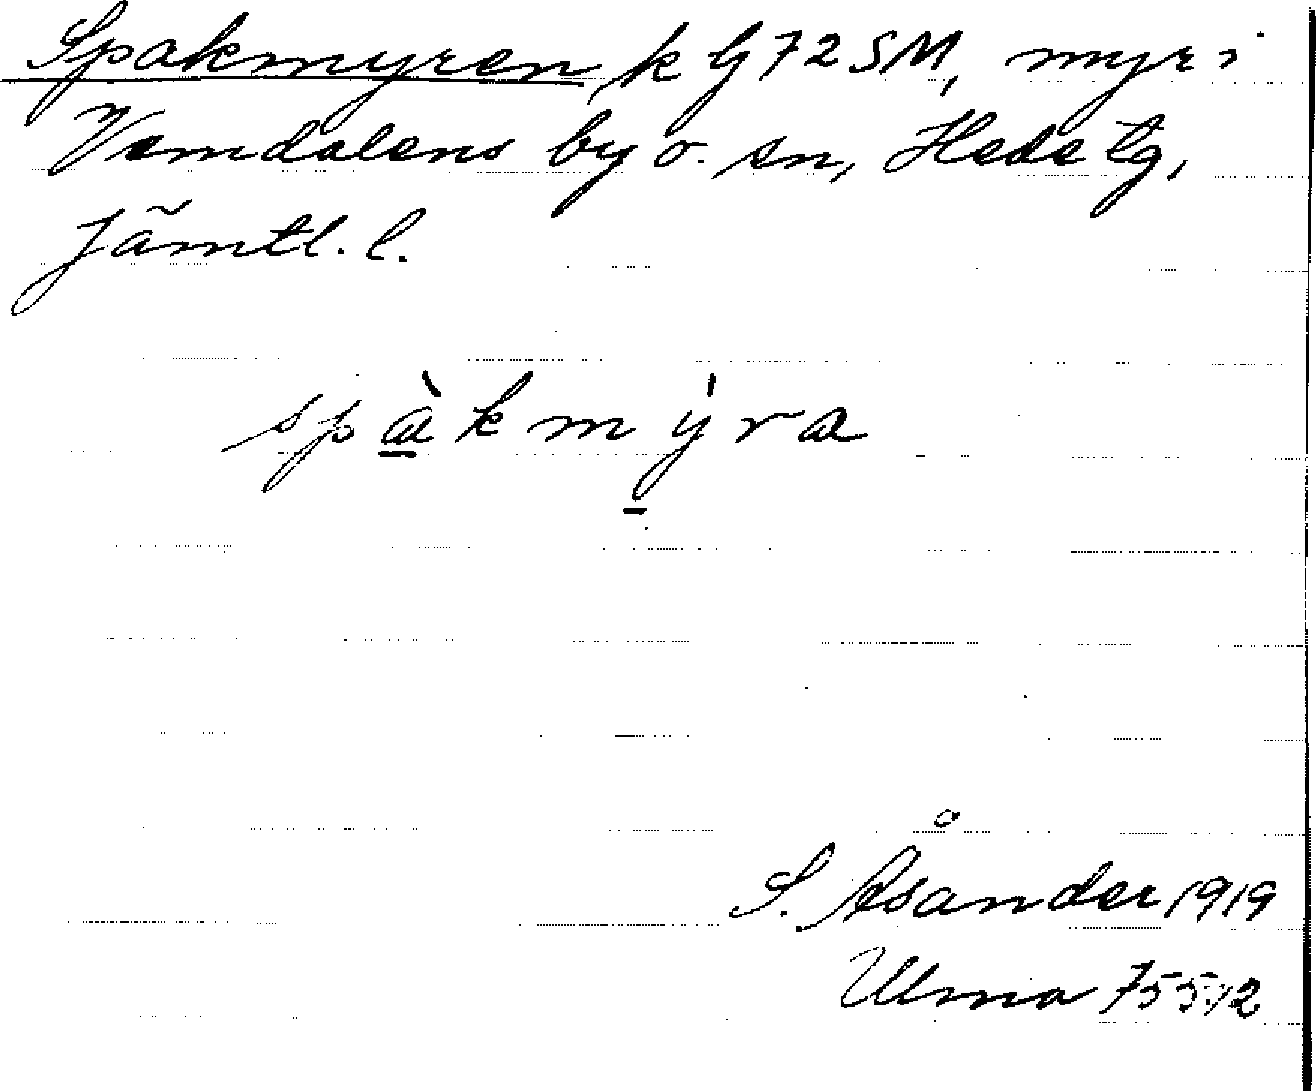 Spakmyren k G72SM, myr i
Vemdalens by o. sn, Hede tg,
Jämtl. l.
spàkmýra
S. Åsander 1919
Ulma 755:2